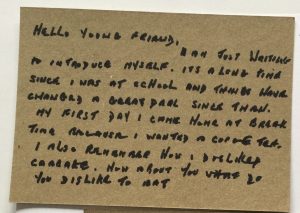 HELLO YOUNG FRIEND,
I AM JUST WRITING
TO INTRODUCE MYSELF. ITS A LONG TIME
SINCE I WAS AT SCHOOL AND THINGS HAVE
CHANGED A GREAT DEAL SINCE THAN.
MY FIRST DAY I CAME HOME AT BREAK
TIME BECAUSE I WANTED A CUP OF TEA.
I ALSO REMEMBER HOW I DISLIKED
CABBAGE. NOW ABOUT YOU WHAT DO
YOU DISLIKE TO EAT